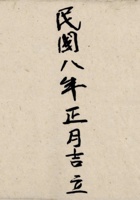 民國八年正月吉立